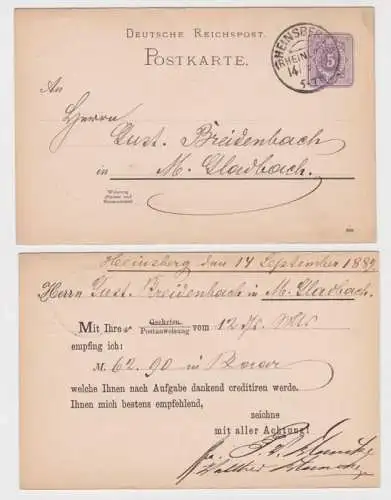 DEUTSCHE REICHSPOST.
POSTKARTE.
HEINSBERG
(RHEIN
14
5-
5
An
Herrn
Gust. Breidenbach
in M. Gladbach.
Wohnung
(Strasse und
Hausnummer)
Heinsberg den 14 September 1889
Herrn Gust. Breidenbach in M. Gladbach.
Mit Ihrer Geehrten vom 12
Postanweisung
empfing ich:
M. 62.90 in
welche Ihnen nach Aufgabe dankend creditiren werde.
Ihnen mich bestens empfehlend,
zeichne
mit aller Achtung!